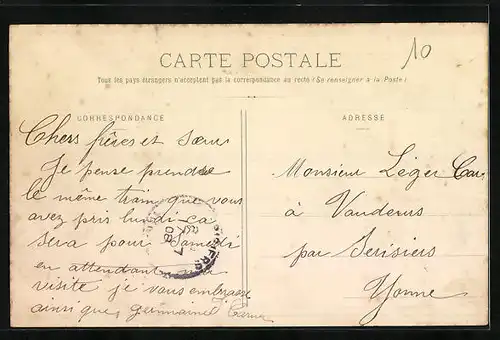 CARTE POSTALE
10
Tous les pays étrangers n'acceptent pas la correspondance au recto (Se renseigner à la Poste)
CORRESPONDANCE
ADRESSE
Chers frères et sœur
Je pense prendre
le même train que vous
avez pris lundi ca
sera pour Samedi
en attendant
visite je vous embrasse
ainsi que germaine
Monsieur Léger
à Vaudeurs
par Cerisiers
Yonne